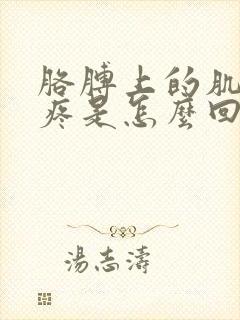 胳膊上的肌
疼是怎麼回
湯志濤